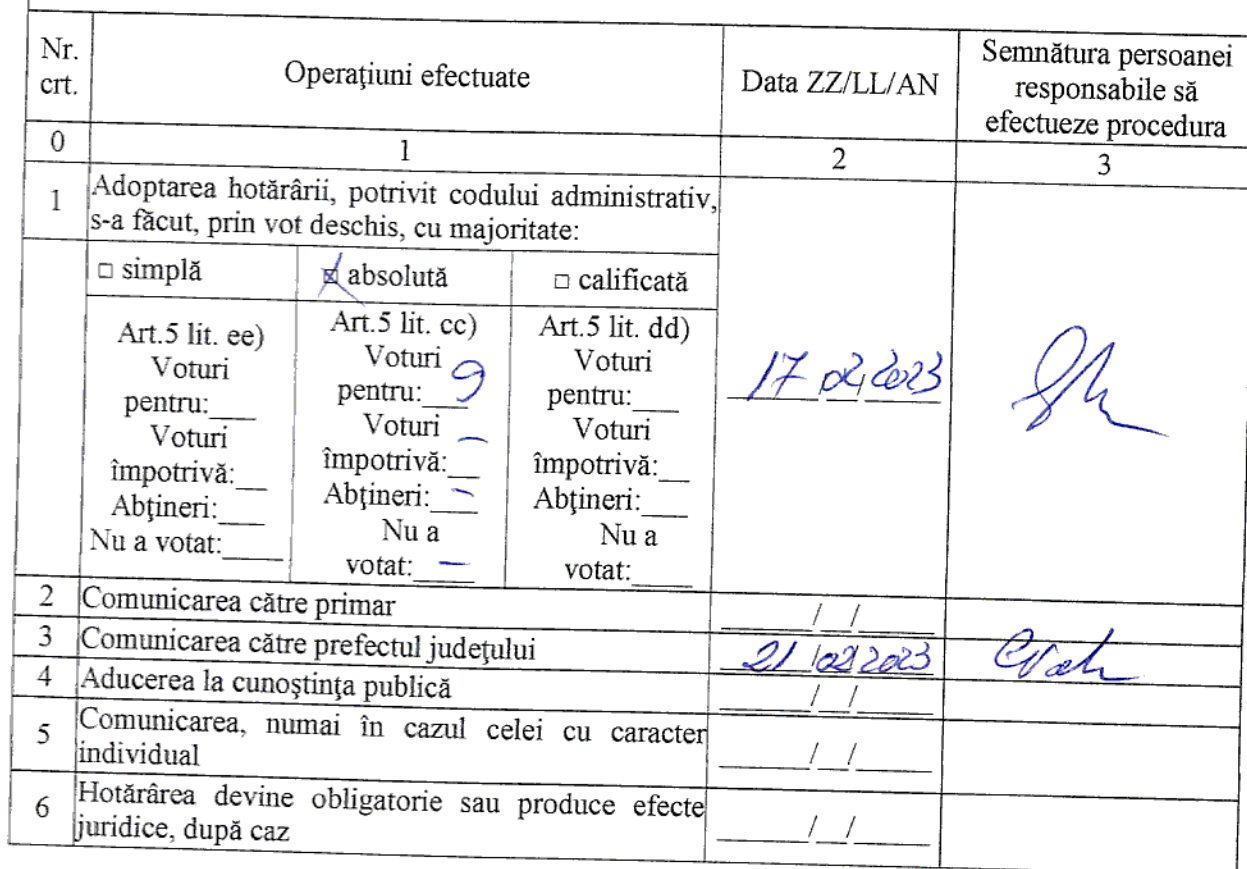 Nr. crt.
Operaţiuni efectuate
Data ZZ/LL/AN
Semnătura persoanei
responsabile să
efectueze procedura
0
1
2
3
1
Adoptarea hotărârii, potrivit codului administrativ,
s-a făcut, prin vot deschis, cu majoritate:
□ simplă
☒ absolută
□ calificată
Art.5 lit. ee)
Voturi
pentru:___
Voturi
împotrivă:__
Abţineri:___
Nu a votat:____
Art.5 lit. cc)
Voturi
pentru: 9
Voturi
împotrivă: –
Abţineri: –
Nu a
votat: –
Art.5 lit. dd)
Voturi
pentru:___
Voturi
împotrivă:__
Abţineri:___
Nu a
votat:____
17/02/2023
2
Comunicarea către primar
____/__/____
3
Comunicarea către prefectul judeţului
21/02/2023
4
Aducerea la cunoştinţa publică
____/__/____
5
Comunicarea, numai în cazul celei cu caracter
individual
____/__/____
6
Hotărârea devine obligatorie sau produce efecte
juridice, după caz
____/__/____